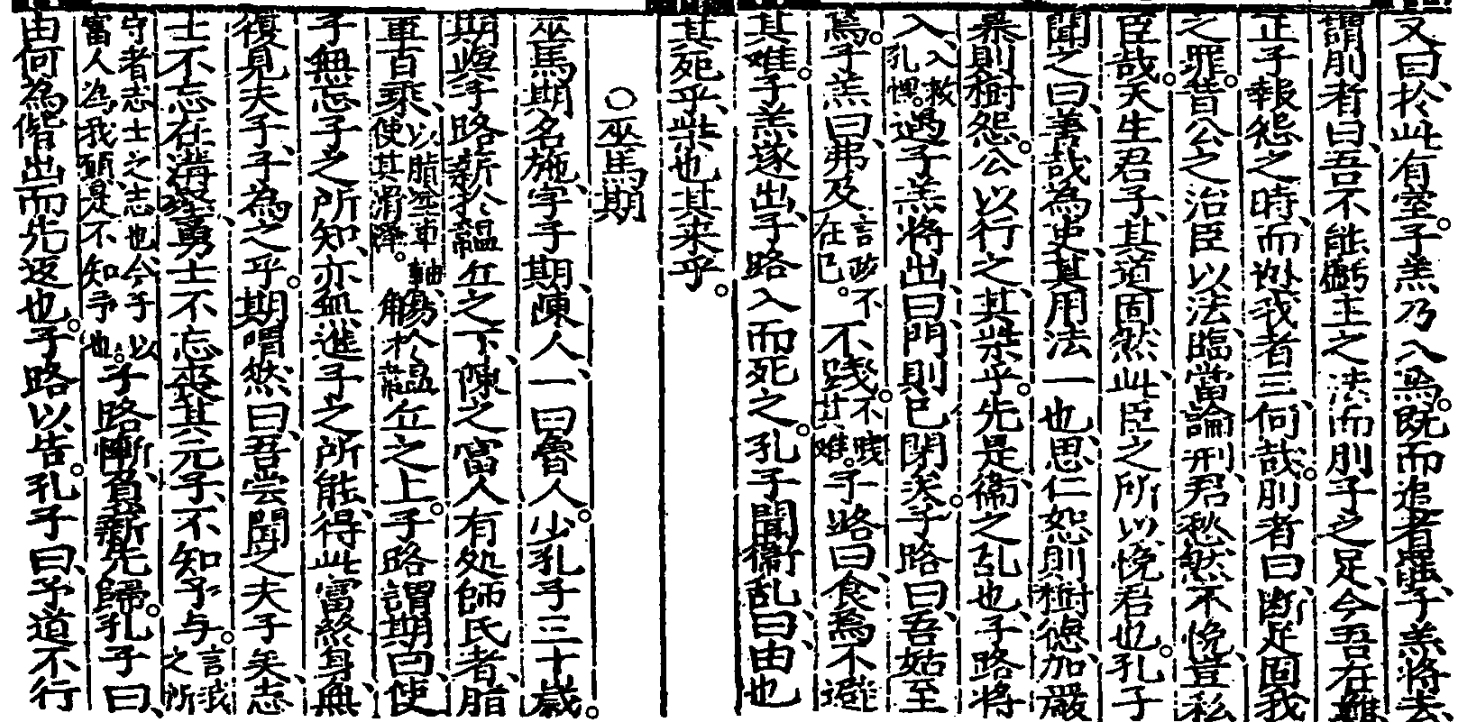 又曰、於此有室。子羔乃入焉。既而追者罷、子羔將去、
謂刖者曰、吾不能虧主之法而刖子之足、今吾在難、
正子報怨之時、而逃我者三、何哉。刖者曰、断足固我
之罪。昔公之治臣以法、臨當論刑、君愁然不悦、豈私
臣哉。天生君子、其道固然、此臣之所以悦君也。孔子
聞之曰、善哉為吏、其用法一也、思仁恕則樹徳、加嚴
暴則樹怨。公以行之、其柴乎。先是衞之乱也、子路將
入、入救孔悝。遇子羔將出、曰、門則已閉矣。子路曰、吾姑至
焉。子羔曰、弗及、言政不在己。不踐。不踐其難。子路曰、食焉不避
其難。子羔遂出、子路入而死之。孔子聞衞乱曰、由也
其死乎、柴也其来乎。
○巫馬期
巫馬期、名施、字子期、陳人、一曰魯人。少孔子三十歳。
期與子路薪於韞丘之下、陳之富人有処師氏者、脂
車百乗、以脂塗車軸、使其滑澤。觴於韞丘之上。子路謂期曰、使
子無忘子之所知、亦無進子之所能、得此富、終身無
復見夫子、子為之乎。期喟然曰、吾嘗聞之夫子矣、志
士不忘在溝壑、勇士不忘喪其元、子不知予与。言我之所
守者志士之志也、今子以富人為我願、是不知予也。子路慚、負薪先歸。孔子曰、
由何為偕出而先返也。子路以告。孔子曰、予道不行